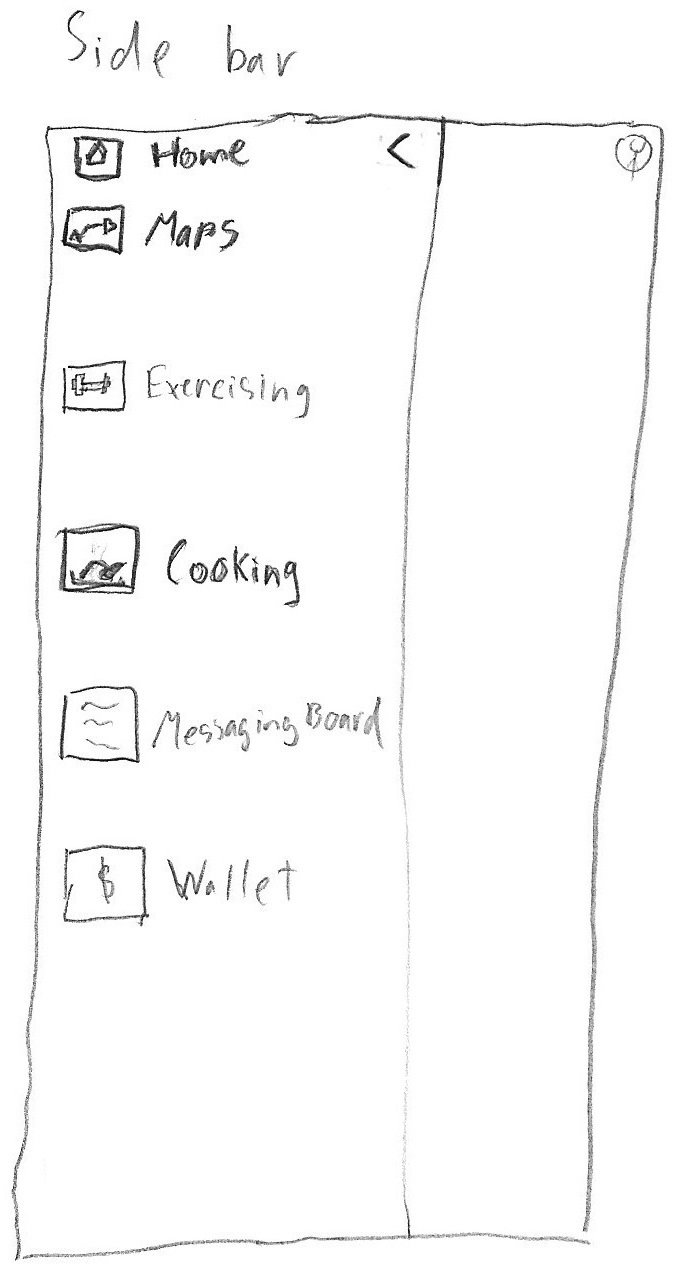 Side bar
Home <
Maps
Exercising
Cooking
Messaging Board
$ Wallet